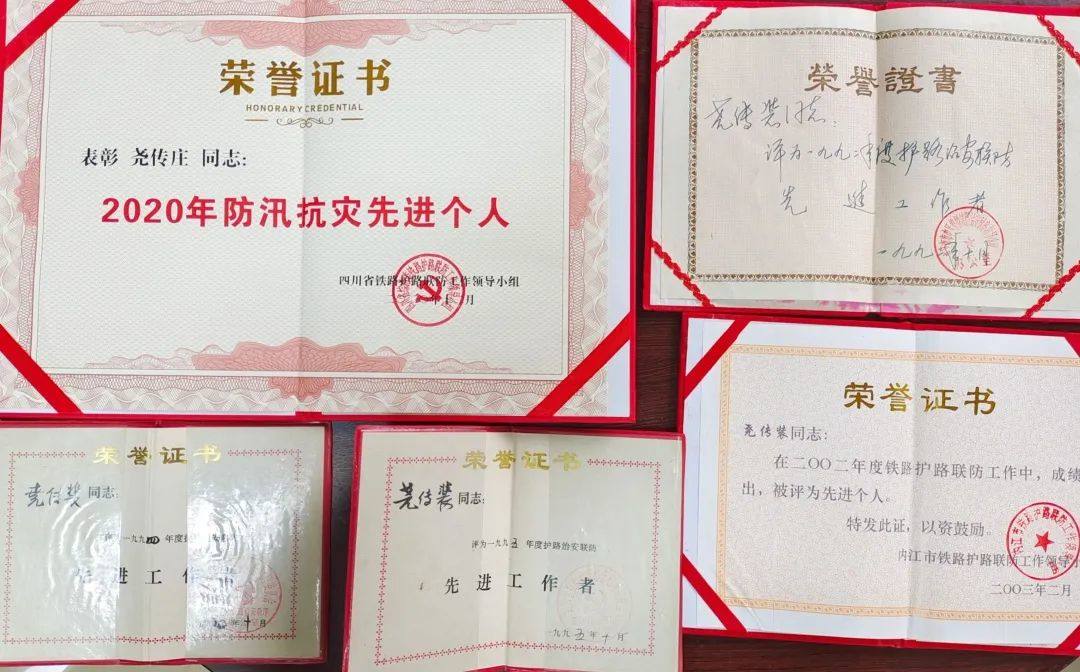 荣誉证书
HONORARY CREDENTIAL
表彰 尧传庄 同志:
2020年防汛抗灾先进个人
四川省铁路护路联防工作领导小组
月
榮譽證書
尧传裝同志:
评为一九九二年度护路治安联防
先进工作者
一九九
十月
荣誉证书
尧传装同志:
在二〇〇二年度铁路护路联防工作中,成绩
出,被评为先进个人。
特发此证,以资鼓励。
内江市铁路护路联防工作领导小
二〇〇三年二月
荣誉证书
尧传装同志:
评为一九九四年度护路
先进工作
年十月
荣誉证书
尧传装同志:
评为一九九五年度护路治安联防
先进工作者
一九九五年十月